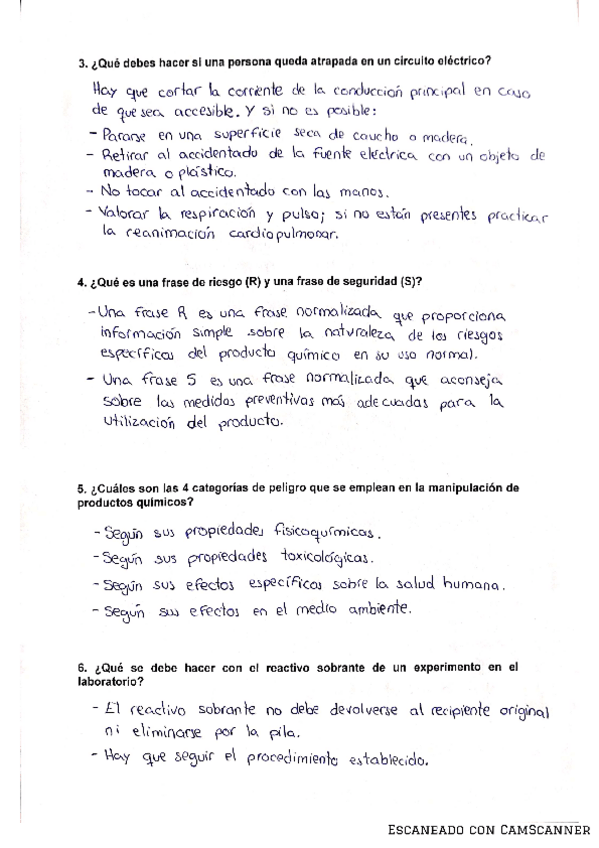 3. ¿Qué debes hacer si una persona queda atrapada en un circuito eléctrico?
Hay que cortar la corriente de la conducción principal en caso
de que sea accesible. Y si no es posible:
- Pararse en una superficie seca de caucho o madera.
- Retirar al accidentado de la fuente eléctrica con un objeto de
madera o plástico.
- No tocar al accidentado con las manos.
- Valorar la respiración y pulso; si no están presentes practicar
la reanimación cardiopulmonar.
4. ¿Qué es una frase de riesgo (R) y una frase de seguridad (S)?
- Una frase R es una frase normalizada que proporciona
información simple sobre la naturaleza de los riesgos
específicos del producto químico en su uso normal.
- Una frase S es una frase normalizada que aconseja
sobre las medidas preventivas más adecuadas para la
utilización del producto.
5. ¿Cuáles son las 4 categorías de peligro que se emplean en la manipulación de
productos químicos?
- Según sus propiedades fisicoquímicas.
- Según sus propiedades toxicológicas.
- Según sus efectos específicos sobre la salud humana.
- Según sus efectos en el medio ambiente.
6. ¿Qué se debe hacer con el reactivo sobrante de un experimento en el
laboratorio?
- El reactivo sobrante no debe devolverse al recipiente original
ni eliminarse por la pila.
- Hay que seguir el procedimiento establecido.
Escaneado con CamScanner